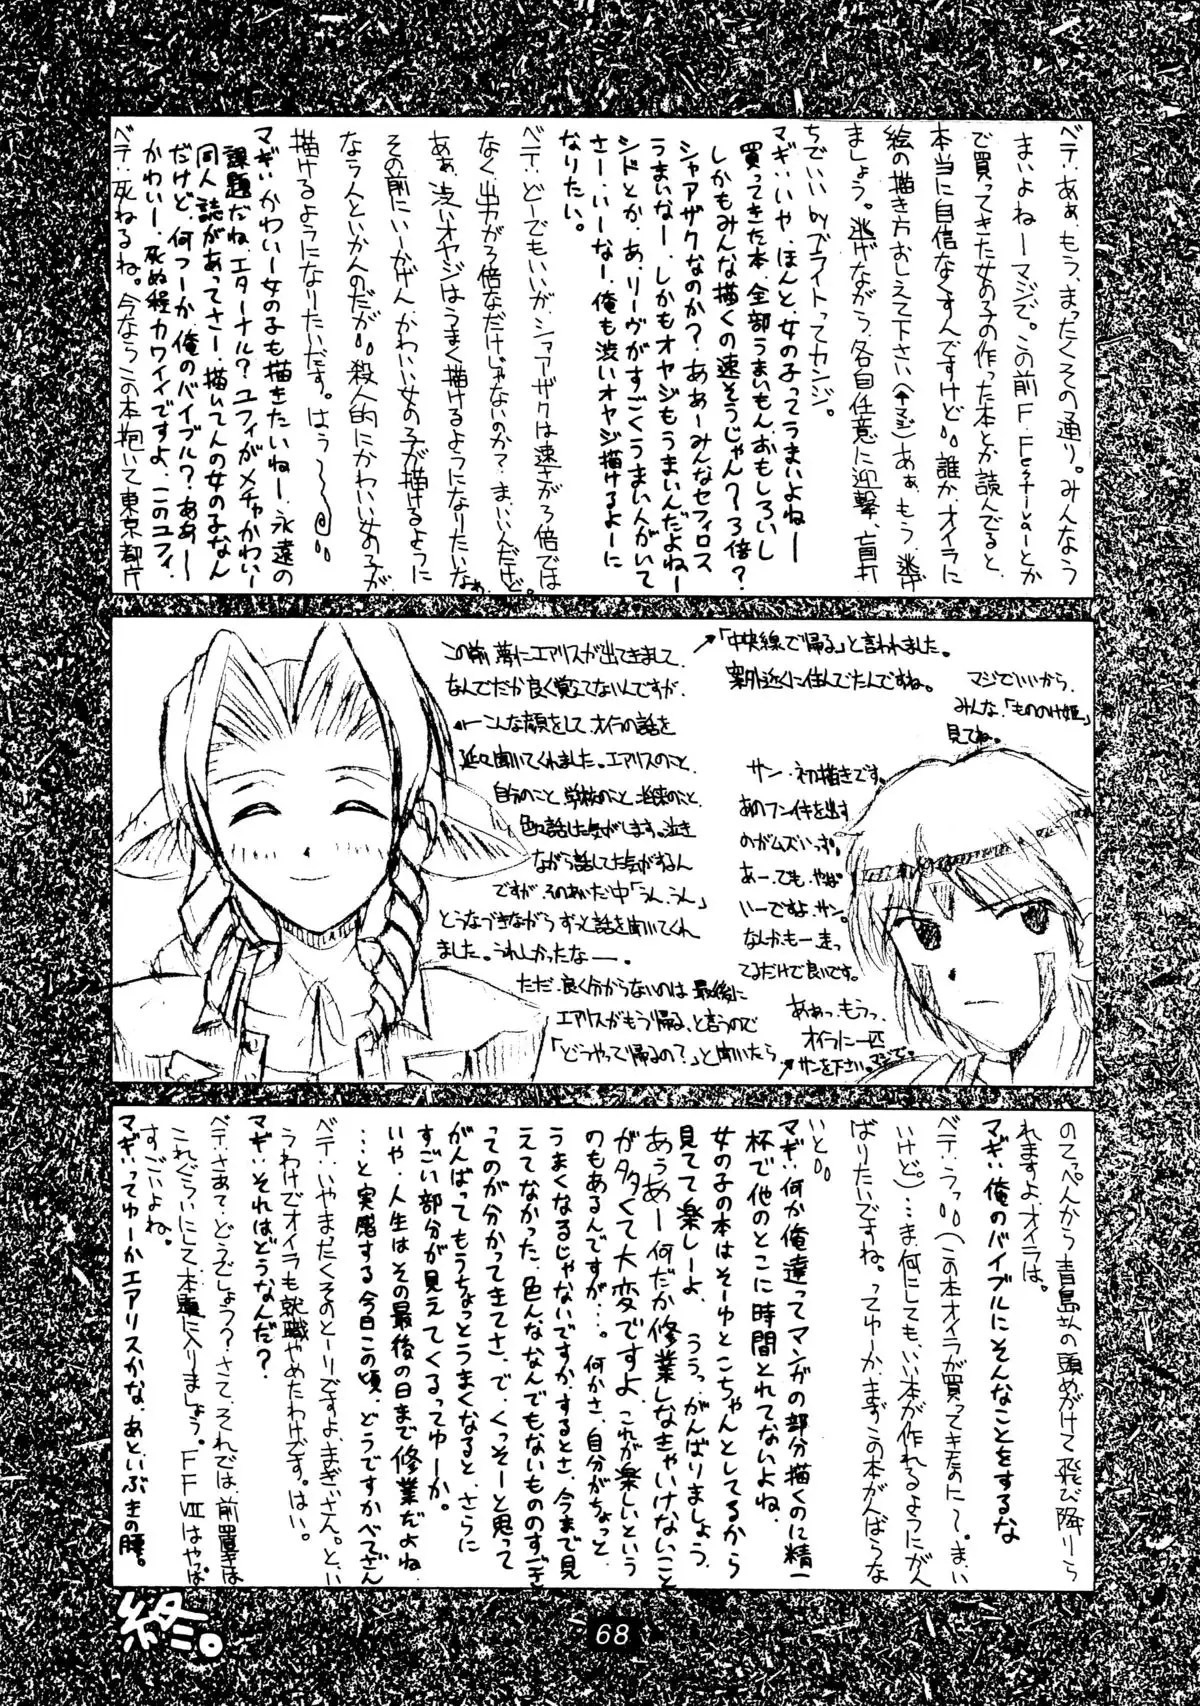 ベテ：あぁ、もう、まったくその通り。みんなう
まいよねーマジで。この前F.Festaとか
で買ってきた女の子の作った本とか読んでると、
本当に自信なくすんですけど。誰か、オイラに
絵の描き方おしえて下さい(↑マジ)あぁ、もう、逃げ
ましょう。逃げながら、各自任意に迎撃、盲打
ちでいい byブライトってカンジ。
マギ：いや、ほんと、女の子ってうまいよねー
買ってきた本、全部うまいもん、おもしろいし
しかもみんな描くの速そうじゃん?3倍?
シャアザクなのか?ああーみんなセフィロス
うまいなー、しかもオヤジもうまいんだよねー
シドとか、あ、リーヴがすごくうまい人がいて
さー、いーなー、俺も渋いオヤジ描けるよーに
なりたい。
ベテ：どーでもいいが、シャアザクは速さが3倍では
なく、出力が3倍なだけじゃないのか?まいいんだけど。
あぁ、渋いオヤジはうまく描けるようになりたいなぁ
その前にいーかげん、かわいい女の子が描けるように
ならんといかんのだが。殺人的にかわいい女の子が
描けるようになりたいだす。はぅ〜
マギ：かわいー女の子も描きたいねー、永遠の
課題だね、エターナル?ユフィがメチャかわいー
同人誌があってさー、描いてんの女の子なん
だけど、何つーか俺のバイブル?ああー
かわいー、死ぬ程カワイイですよ、このユフィ、
ベテ：死ねるね。今ならこの本抱いて東京都庁
この前、夢にエアリスが出てきまして、
なんでだか良く覚えてないんですが、
←こんな顔をして、オイラの話を
延々聞いてくれました。エアリスのこと、
自分のこと、学校のこと、将来のこと、
色々話した気がします。泣き
ながら話してた気がするん
ですが、そのあいだ中「うん、うん」
とうなづきながらずっと話を聞いてくれ
ました。うれしかったなー。
ただ、良く分からないのは、最後に
エアリスがもう帰る、と言うので
「どうやって帰るの?」と聞いたら
↗「中央線で帰る」と言われました。
案外近くに住んでたんですね。
マジでいいから、
みんな、「もののけ姫」
見てね。
サン・初描きです。
あのフンイ気を出す
のがムズいっす。
あー、でも、やっぱ
いーですよ、サン。
なんかもー、走っ
てるだけで良いです。
あぁっ、もうっ、
オイラに一匹
サンを下さい。マジで。
のてっぺんから青島さんの頭めがけて飛び降りら
れますよ、オイラは。
マギ：俺のバイブルにそんなことをするな
ベテ：うっ(この本オイラが買ってきたのにて。まいい
いけど)…ま、何にしても、いい本が作れるようにがん
ばりたいですね。ってゆーか、まずこの本がんばらな
いと。
マギ：何か俺達ってマンガの部分描くのに精一
杯で他のとこに時間とれてないよね、
女の子の本はそーゆとこちゃんとしてるから
見てて楽しーよ、ううっ、がんばりましょう、
あぅあー何だか修業しなきゃいけないこと
が多くて大変ですよ、これが楽しいという
のもあるんですが…。何かさ、自分がちょっと、
うまくなるじゃないですか、するとさ、今まで見
えてなかった、色んな、なんでもないもののすごさ
ってのが分かってきてさ、で、くっそーと思って
がんばってもうちょっとうまくなると、さらに
すごい部分が見えてくるってゆーか。
いや、人生はその最後の日まで修業だよね
…と実感する今日この頃、どうですかベテさん
ベテ：いやまったくそのとーりですよ、まぎぃさん。とい
うわけでオイラも就職やめたわけです。はい。
マギ：それはどうなんだ?
ベテ：さあて、どうでしょう?さて、それでは、前置きは
これぐらいにして本題に入りましょう。FFⅦはやっぱ
すごいよね。
マギ：ってゆーかエアリスかな、あといぶきの腰。
終。
68